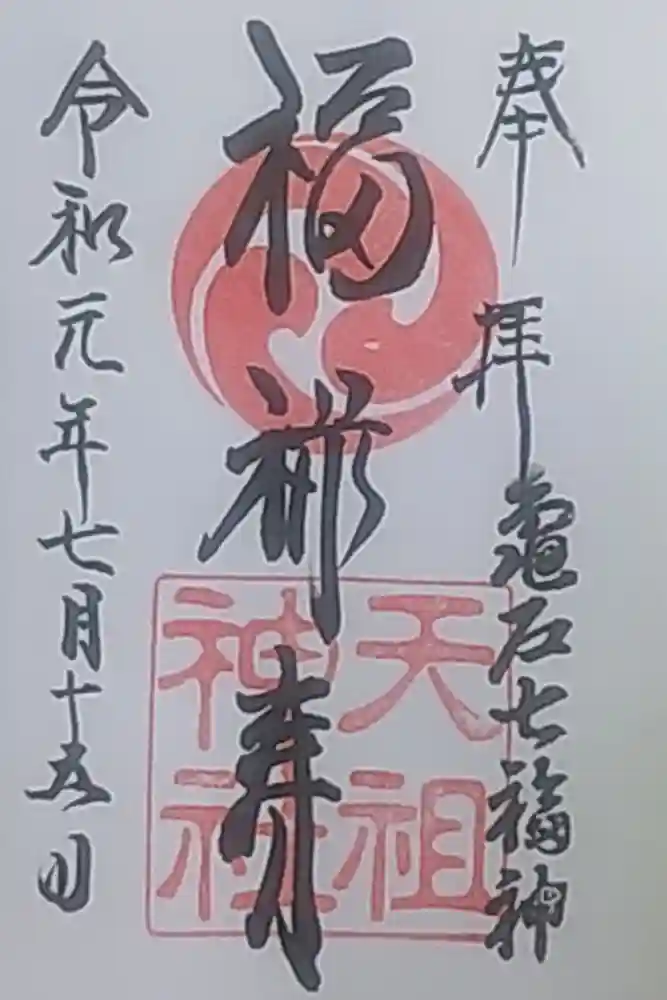 奉拝 亀戸七福神
福禄寿
天祖神社
令和元年七月十五日